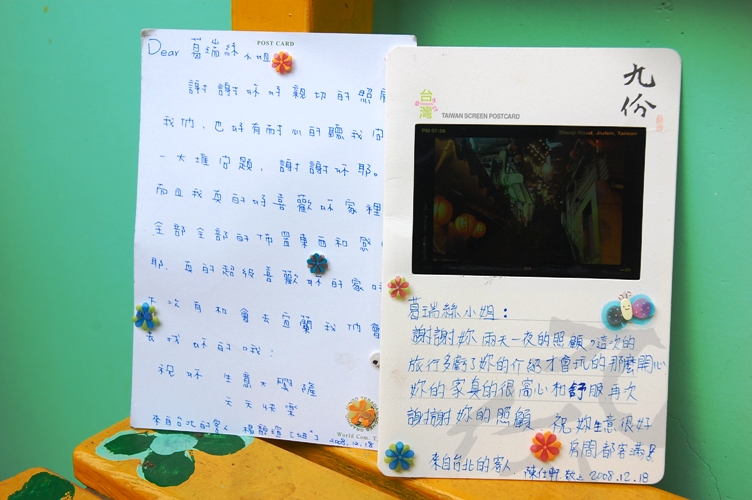 POST CARD
Dear 葛瑞絲 小姐
謝謝妳好親切的照顧
我們,也好有耐心的聽我問
一大堆問題,謝謝妳耶。
而且我真的好喜歡妳家裡
全部全部的佈置東西和感
耶,真的超級喜歡妳的家
下次有机會去宜蘭我們會
去找妳的哦
祝妳 生意大興隆
天天快樂
來自台北的客人 楊
2008.12.18
World Com. T
九份
台灣
TAIWAN SCREEN POSTCARD
PM 07:00
Shuqi Road, Jiufen, Taiwan
葛瑞絲小姐:
謝謝妳兩天一夜的照顧。這次的
旅行多虧了妳的介紹才會玩的那麼開心
妳的家真的很窩心和舒服再次
謝謝妳的照顧 祝 妳生意很好
房間都客滿
來自台北的客人 陳仕軒 敬上 2008.12.18